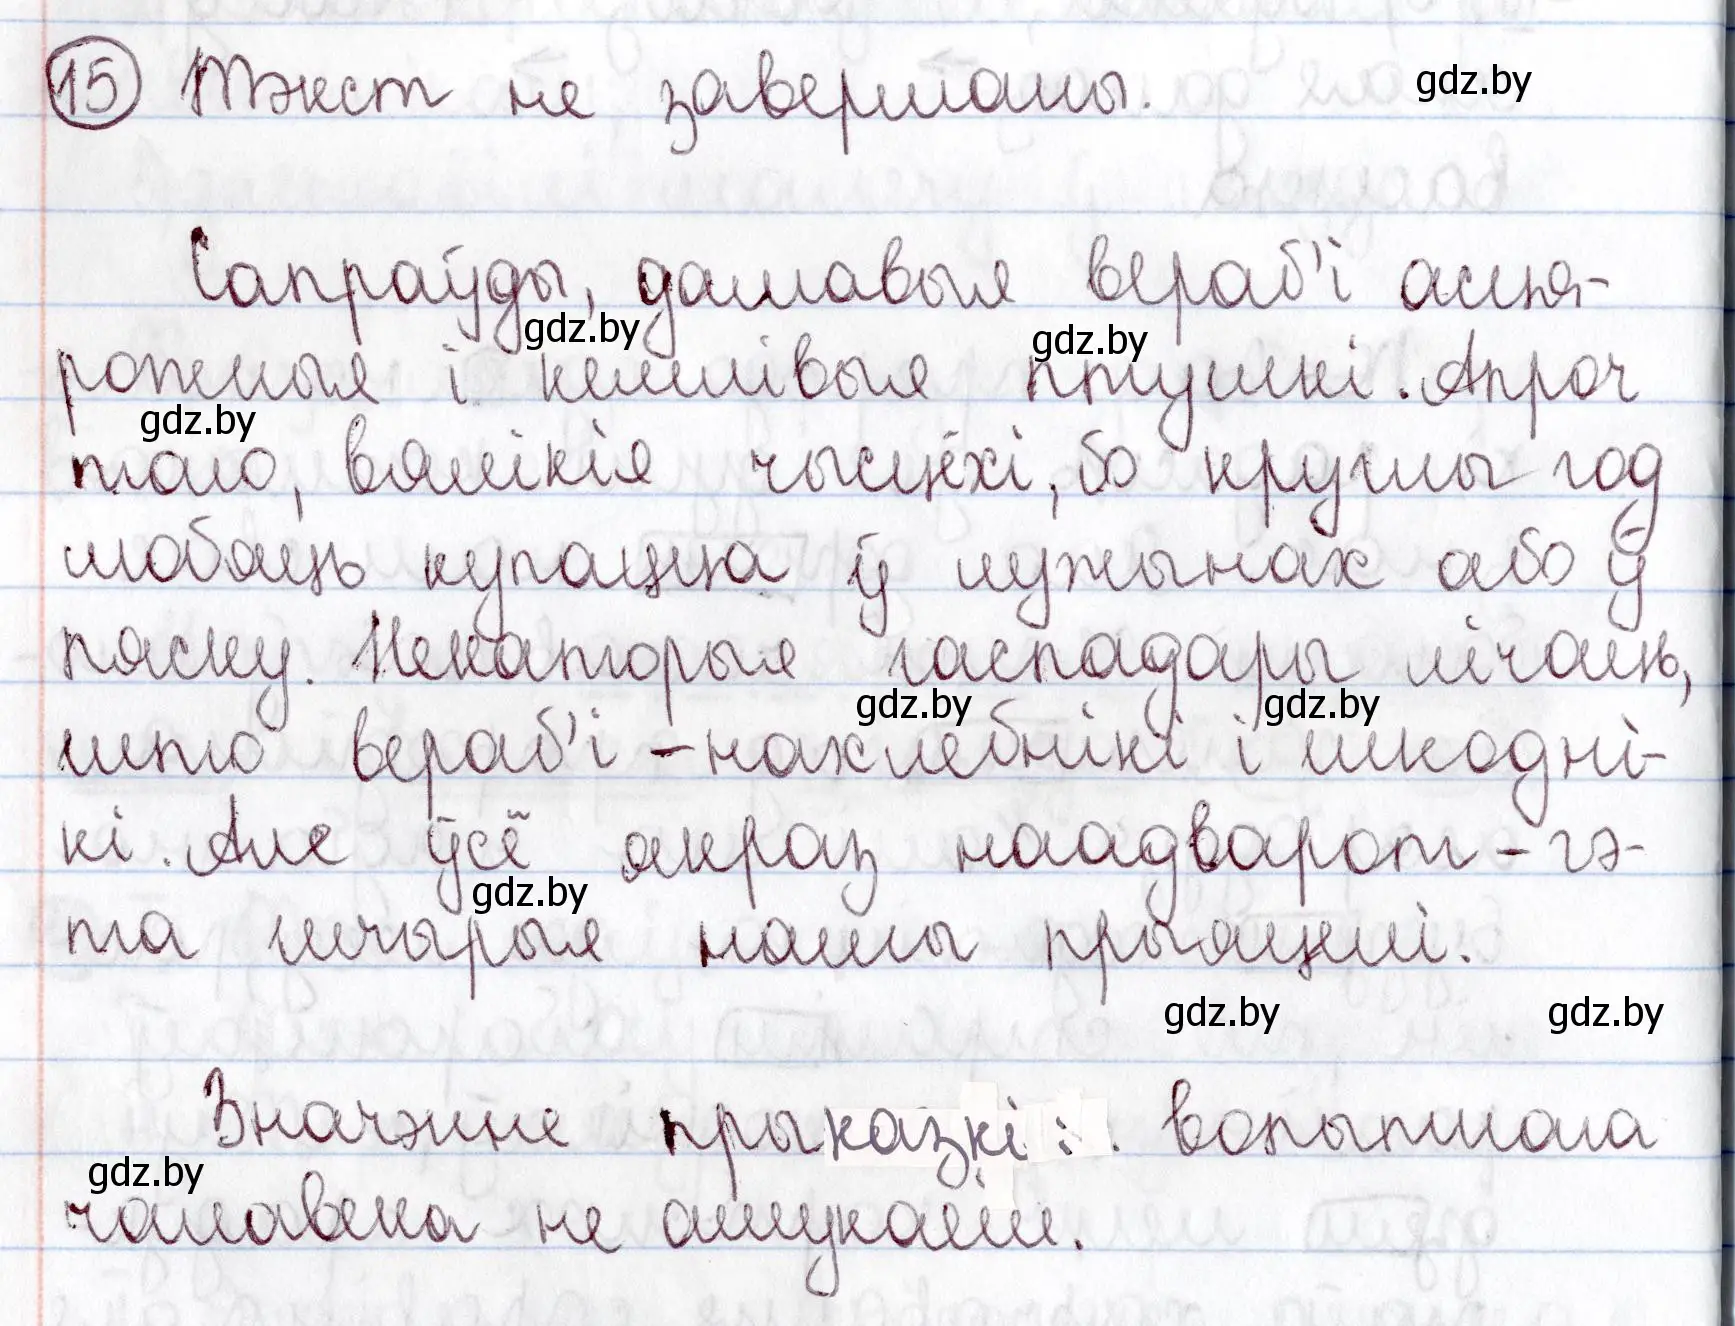 15 Тэкст не завершаны.
gdz.by
Сапраўды, дамавыя вераб'і асця-
gdz.by gdz.by
рожныя і кемлівыя птушкі. Апроч
gdz.by
таго, вялікія чысцёхі, бо круглы год
любяць купацца ў лужынах або ў
пяску. Некаторыя гаспадары лічаць,
gdz.by gdz.by
што вераб'і - нахлебнікі і шкодні-
кі. Але ўсё якраз наадварот - гэ-
gdz.by
та шчырыя нашы прыяцелі.
gdz.by gdz.by
Значэнне прыказкі: вопытнага
gdz.by
чалавека не ашукаеш.